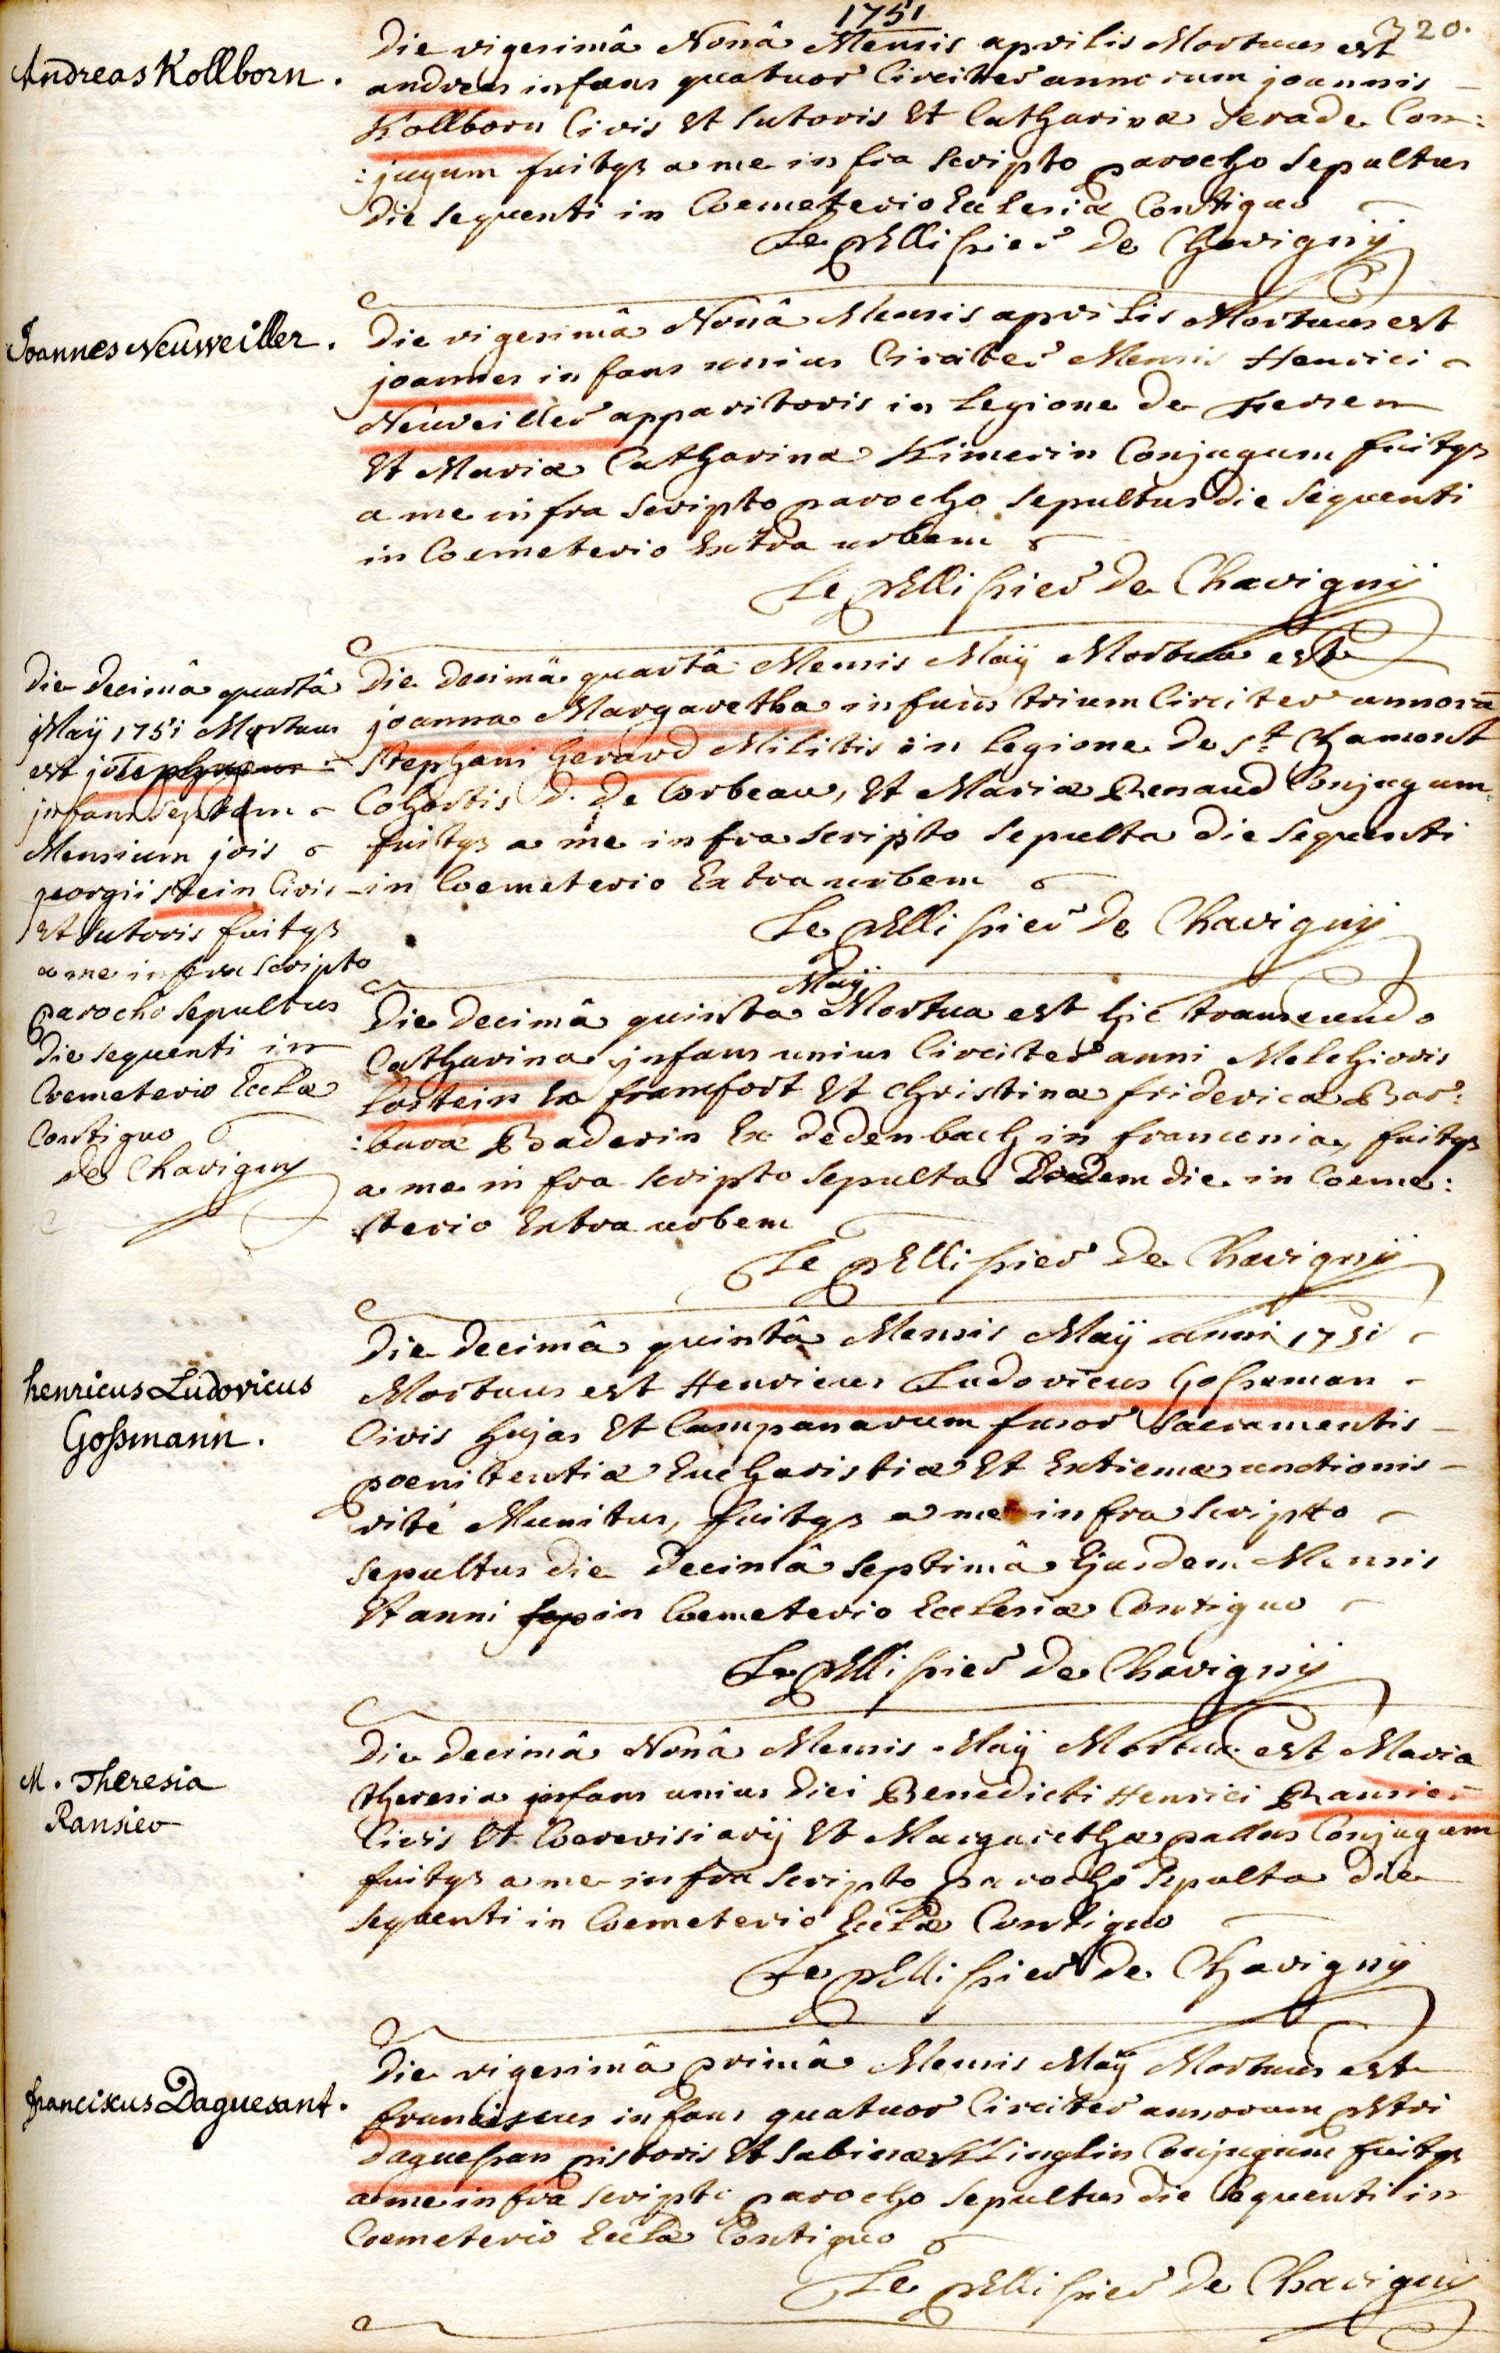 1751
320.
Andreas Kollborn.
Die vigesimâ Nonâ Mensis aprilis Mortuus est
andreas infans quatuor Circiter annorum joannis
Kollborn Civis Et Sutoris Et Catharinæ Serade Con:
:jugum fuitqz a me infra scripto parocho Sepultus
die sequenti in Coemeterio Ecclesiæ Contiguo
Le pEllissier De Chavignÿ
Joannes Neuweiller.
Die vigesimâ Nonâ Mensis aprilis Mortuus est
joannes infans unius Circiter Mensis Henrici
Neuveiller apparitoris in Legione De Fersen
Et Mariæ Catharinæ Kimerin Conjugum fuitqz
a me infra scripto parocho Sepultus die Sequenti
in Coemeterio Extra urbem
Le pEllissier De Chavignÿ
Die Decimâ quartâ Mensis Maÿ Mortua est
joanna Margaretha infans trium Circiter annorū
Stephani Gerard Militis in Legione De St Chamont
Cohortis D. De Corbeau, Et Mariæ Renaud Conjugum
fuitqz a me infra scripto Sepulta Die Sequenti
in Coemeterio Extra urbem
Le pEllissier De Chavignÿ
Die Decimâ quartâ
Maÿ 1751 Mortuus
est joseph
infans Septem
Mensium jois
georgii Stein Civis
Et Sutoris fuitqz
a me infra scripto
parocho Sepultus
Die sequenti in
Coemeterio Eccłæ
Contiguo
De Chavigny
Maÿ
Die Decimâ quinta Mortua est hic transeundo
Catharina infans unius Circiter anni Melchioris
Lortein Ex francfort Et Christinæ fridericæ Bar:
:baræ Baderin Ex Dedenbach in franconia, fuitqz
a me infra scripto Sepulta Eadem die in Coeme:
:terio Extra urbem
Le pEllissier De Chavignÿ
henricus Ludovicus
Goßmann.
Die Decimâ quintâ Mensis Maÿ anni 1751
Mortuus est Henricus Ludovicus Gossman
Civis hujas Et Campanarum fusor Sacramentis
poenitentiæ Eucharistiæ Et Extremæ unctionis
rité Munitus, fuitqz a me infra scripto
Sepultus die Decimâ Septimâ Ejusdem Mensis
Et anni sep in Coemeterio Ecclesiæ Contiguo
Le pEllissier De Chavignÿ
M. Theresia
Ransier
Die Decimâ Nonâ Mensis Maÿ Mortua est Maria
theresia infans unius Diei Benedicti Henrici Ransier
Civis Et Coerevisiarÿ Et Margarethæ pallas Conjugum
fuitqz a me infra scripto parocho Sepulta Die
Sequenti in Coemeterio Eccłæ Contiguo
Le pEllissier De Chavignÿ
franciscus Daguesant.
Die vigesimâ primâ Mensis Maÿ Mortuus est
franciscus infans quatuor Circiter annorum pEtri
Daguessan pistoris Et Sabinæ Klinglin Conjugum fuitqz
a me infra scripto parocho Sepultus die Sequenti in
Coemeterio Eccłæ Contiguo
Le pEllissier De Chavignÿ